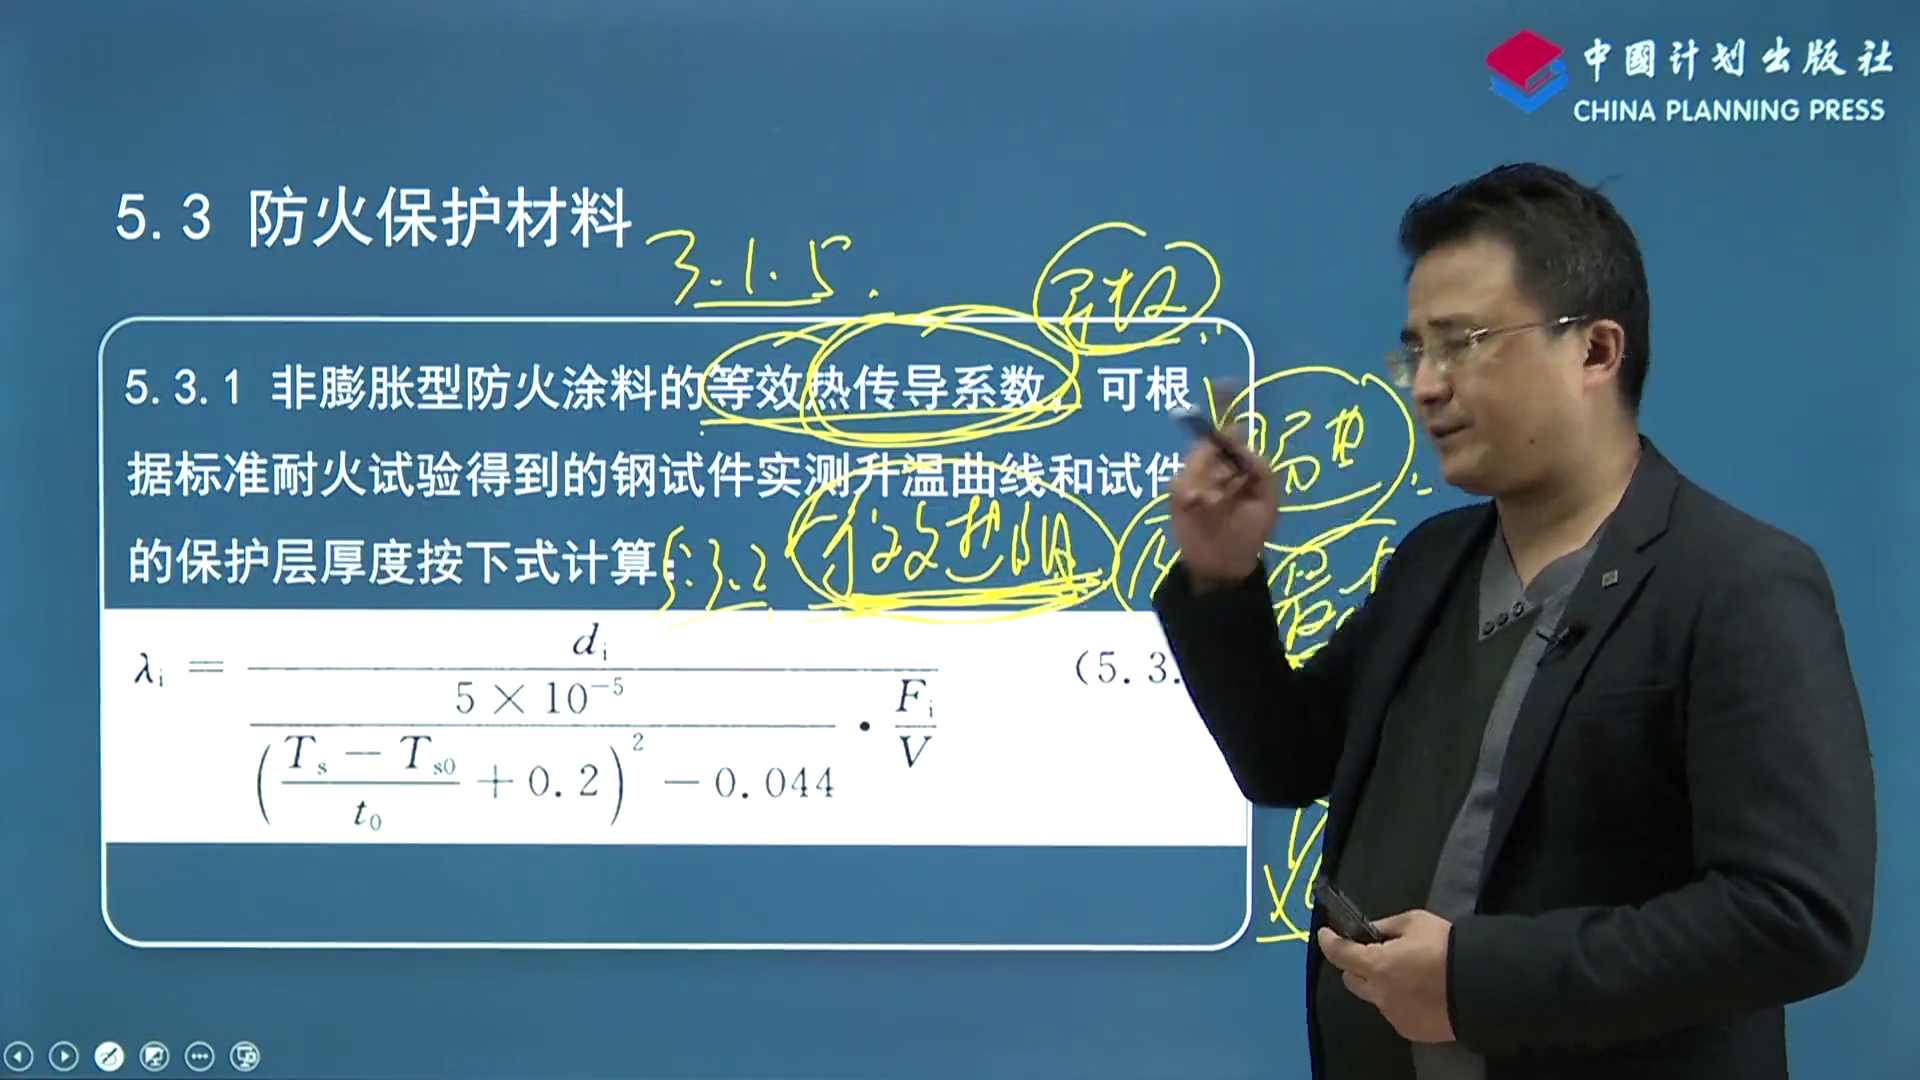 中國计划出版社
CHINA PLANNING PRESS
5.3 防火保护材料
3.1.5.
导热
5.3.1 非膨胀型防火涂料的等效热传导系数，可根
隔热
据标准耐火试验得到的钢试件实测升温曲线和试件
的保护层厚度按下式计算：
5.3.2 等效热阻
λi = di / (5×10⁻⁵ / (((Ts − Ts0) / t0 + 0.2)² − 0.044) · Fi / V)
(5.3.